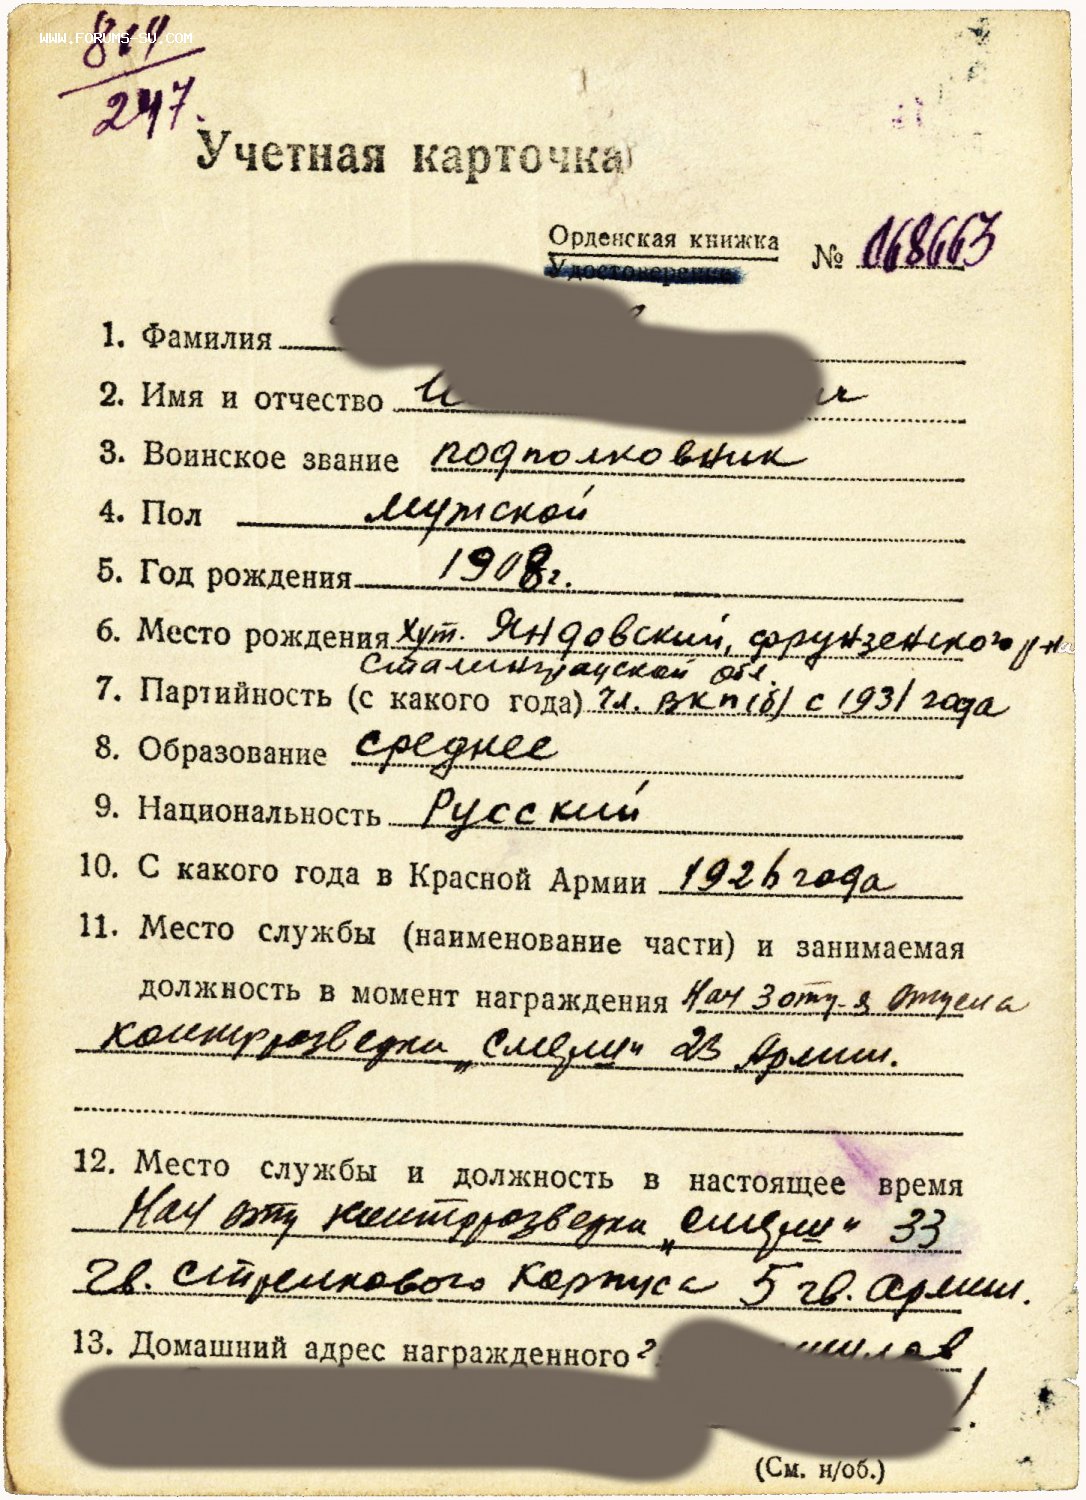 WWW.FORUMS-SU.COM
247.
Учетная карточка
Орденская книжка
Удостоверение
№ 068663
1. Фамилия
2. Имя и отчество
3. Воинское звание подполковник
4. Пол мужской
5. Год рождения 1908 г.
6. Место рождения Хут. Яндовский, Фрунзенского р-на
Сталинградской обл.
7. Партийность (с какого года) Чл. ВКП(б) с 1931 года
8. Образование среднее
9. Национальность Русский
10. С какого года в Красной Армии 1926 года
11. Место службы (наименование части) и занимаемая
должность в момент награждения Нач 3 отд-я отдела
контрразведки „Смерш“ 23 Армии.
12. Место службы и должность в настоящее время
Нач отд контрразведки „Смерш“ 33
гв. стрелкового Корпуса 5 гв. Армии.
13. Домашний адрес награжденного г.
(См. н/об.)